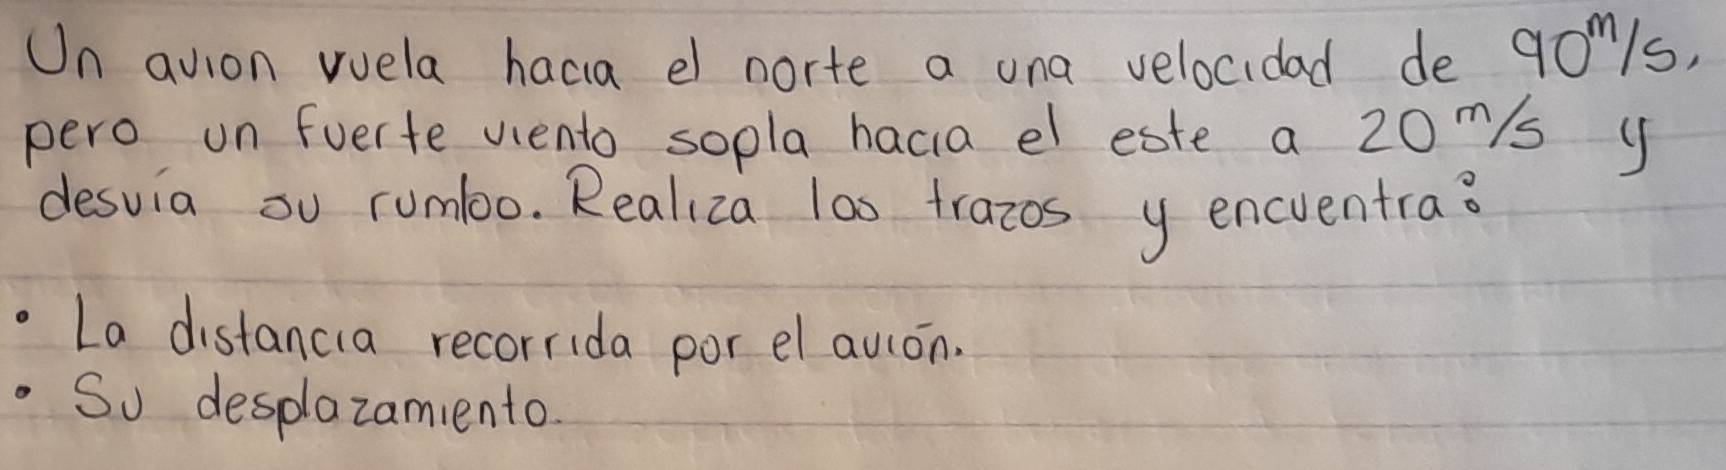 Un avion vuela hacia el norte a una velocidad de 90 m/s,
pero un fuerte viento sopla hacia el este a 20 m/s y
desvía su rumbo. Realiza los trazos y encuentra:
• La distancia recorrida por el avión.
• Su desplazamiento.